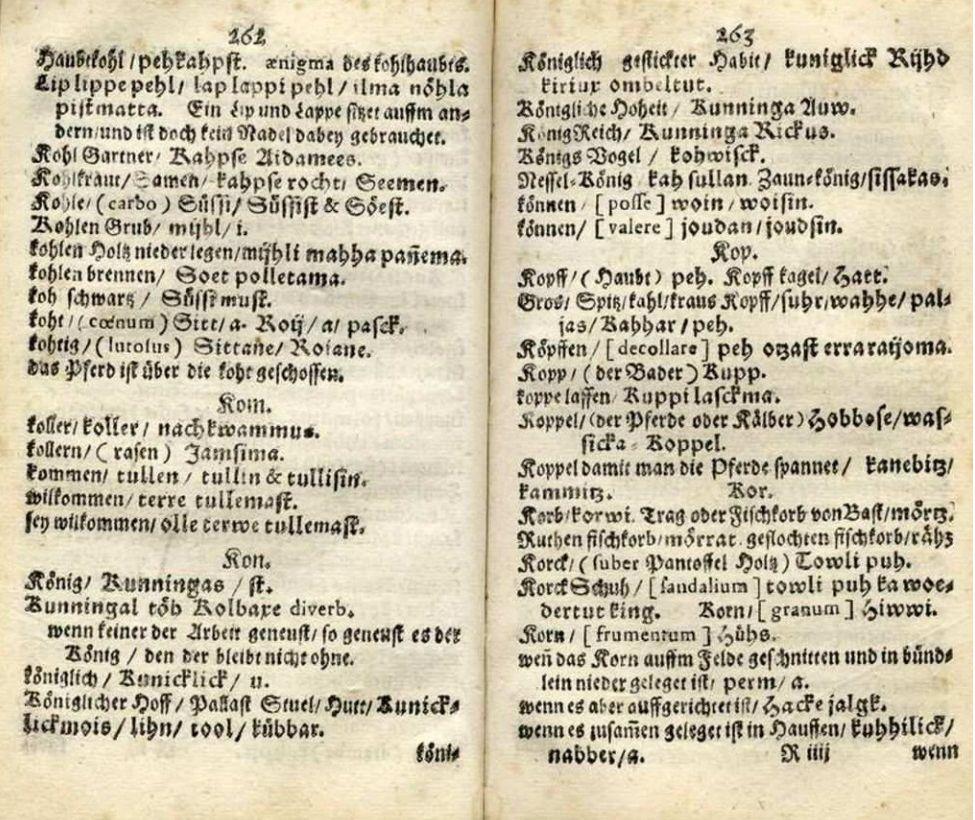 262
Haubtkohl / pehkahpst. ænigma des kohlhaubts.
Lip lippe pehl / lap lappi pehl / ilma nöhla
pistmatta. Ein Lip und Lappe sitzet auffm an-
dern / und ist doch kein Nadel dabey gebrauchet.
Kohl Gartner / Kahpse Aidamees.
Kohlkraut / Samen / kahpse rocht / Seemen.
Kohle / (carbo) Süssi / Süssist & Söest.
Kohlen Grub / mijhl / i.
kohlen Holtz nieder legen / mijhli mahha pañema.
kohlen brennen / Soet polletama.
koh schwartz / Süssi must.
koht / (cœnum) Sitt / a. Roij / a / pasck.
kohtig / (lutosus) Sittane / Roiane.
das Pferd ist über die koht geschossen.
Kom.
koller / koller / nachkwammus.
kollern / (rasen) Jamsima.
kommen / tullen / tullin & tullisin.
wilkommen / terre tullemast.
sey wilkommen / olle terwe tullemast.
Kon.
König / Kunningas / st.
Kunningal töb Kolbaxe diverb.
wenn keiner der Arbeit geneust / so geneust es der
König / den der bleibt nicht ohne.
königlich / Kunicklick / u.
Königlicher Hoff / Pallast Stuel / Hutt / Kunick-
lickmois / lihn / tool / kübbar.
köni-
263
Königlich gestickter Habit / kuniglick Rijhd
kirjux ombeltut.
Königliche Hoheit / Kunninga Auw.
König Reich / Kunninga Rickus.
Königs Vogel / kohwisck.
Nessel-König kah sullan. Zaun-könig / sissakas.
können / [posse] woin / woisin.
können / [valere] joudan / joudsin.
Kop.
Kopff / (Haubt) peh. Kopff kagel / Hatt.
Gros / Spitz / kahl / kraus Kopff / suhr / wahhe / pal-
jas / Kahhar / peh.
Köpffen / [decollare] peh otzast erraraijoma.
Kopp / (der Bader) Kupp.
koppe lassen / Kuppi lasckma.
Koppel / (der Pferde oder Kälber) Hobbose / was-
sicka - Koppel.
Koppel damit man die Pferde spannet / kanebitz /
kammitz. Kor.
Korb / korwi. Trag oder Fischkorb von Bast / mörtz.
Ruthen fischkorb / mörrat. geflochten fischkorb / rähz
Korck / (suber Pantoffel Holtz) Towli puh.
Korck Schuh / [sandalium] towli puh ka woe-
dertut king. Korn / [granum] Hiwwi.
Korn / [frumentum] Hühs.
weñ das Korn auffm Felde geschnitten und in bünd-
lein nieder geleget ist / perm / a.
wenn es aber auffgerichtet ist / Hacke jalgk.
wenn es zusam̃en geleget ist in Hauffen / kuhhilick /
nabber / a. R iiij wenn